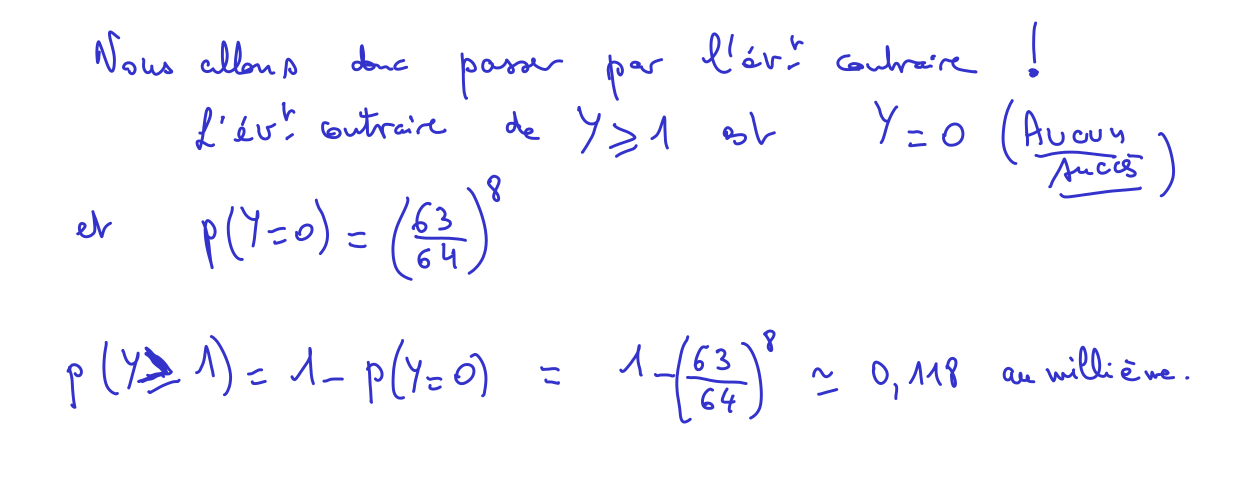 Nous allons donc passer par l'évt contraire !
L'évt contraire de Y ⩾ 1 est Y = 0 (Aucun succès)
et p(Y=0) = (63/64)^8
p(Y ⩾ 1) = 1 - p(Y=0) = 1 - (63/64)^8 ≃ 0,118 au millième.